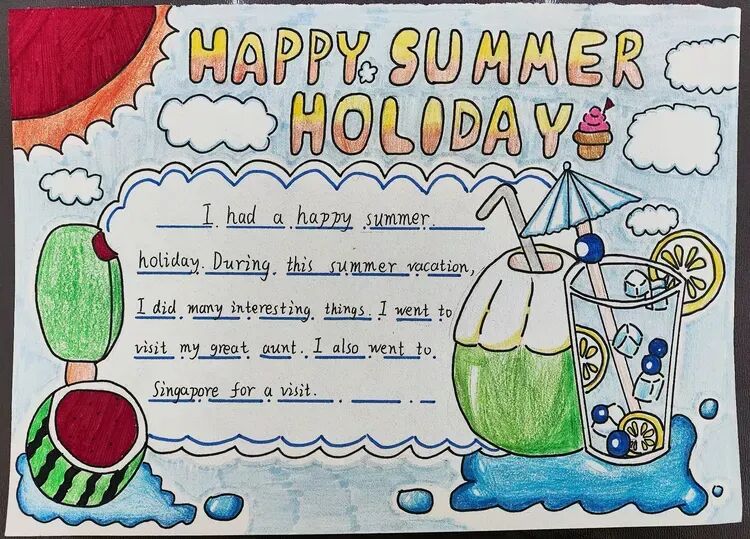 HAPPY SUMMER
HOLIDAY
I had a happy summer
holiday. During this summer vacation,
I did many interesting things. I went to
visit my great aunt. I also went to
Singapore for a visit.